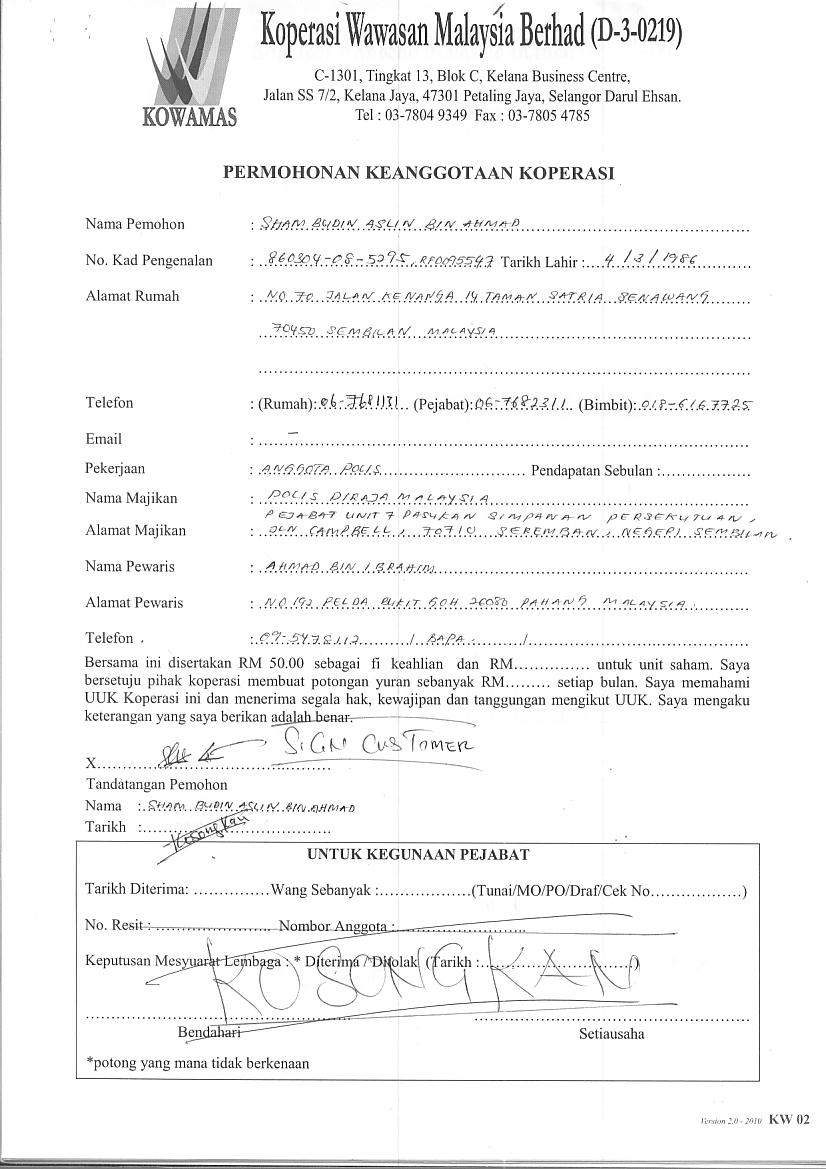 Koperasi Wawasan Malaysia Berhad (D-3-0219)
C-1301, Tingkat 13, Blok C, Kelana Business Centre,
Jalan SS 7/2, Kelana Jaya, 47301 Petaling Jaya, Selangor Darul Ehsan.
KOWAMAS
Tel : 03-7804 9349 Fax : 03-7805 4785
PERMOHONAN KEANGGOTAAN KOPERASI
Nama Pemohon : SHAM BUDIN ASLIN BIN AHMAD
No. Kad Pengenalan : 860304-08-5295, RF0095547 Tarikh Lahir : 4 / 3 / 1986
Alamat Rumah : NO. 70 JALAN KENANGA 14 TAMAN SATRIA SENAWANG
70450 SEMBILAN MALAYSIA
Telefon : (Rumah): 06-7681131 (Pejabat): 06-7682311 (Bimbit): 018-6167725
Email : –
Pekerjaan : ANGGOTA POLIS Pendapatan Sebulan :
Nama Majikan : POLIS DIRAJA MALAYSIA
PEJABAT UNIT 7 PASUKAN SIMPANAN PERSEKUTUAN,
Alamat Majikan : JLN CAMPBELL, 70710 SEREMBAN, NEGERI SEMBILAN.
Nama Pewaris : AHMAD BIN IBRAHIM
Alamat Pewaris : NO 192 FELDA BUKIT GOH 26080 PAHANG MALAYSIA
Telefon : 09-5478112 / BAPA /
Bersama ini disertakan RM 50.00 sebagai fi keahlian dan RM............... untuk unit saham. Saya
bersetuju pihak koperasi membuat potongan yuran sebanyak RM......... setiap bulan. Saya memahami
UUK Koperasi ini dan menerima segala hak, kewajipan dan tanggungan mengikut UUK. Saya mengaku
keterangan yang saya berikan adalah benar.
SIGN CUSTOMER
X
Tandatangan Pemohon
Nama : SHAM BUDIN ASLIN BIN AHMAD
Tarikh : Kosongkan
UNTUK KEGUNAAN PEJABAT
Tarikh Diterima: ...............Wang Sebanyak :..................(Tunai/MO/PO/Draf/Cek No..................)
No. Resit : ....................... Nombor Anggota :
Keputusan Mesyuarat Lembaga : * Diterima / Ditolak (Tarikh : )
KOSONGKAN
Bendahari Setiausaha
*potong yang mana tidak berkenaan
Version 2.0 - 2010 KW 02